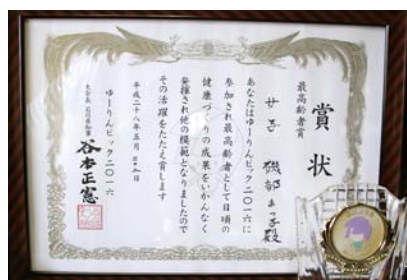 賞状
最高齢者賞
女子 磯部まつ子殿
あなたはゆーりんピック二〇一六に
参加され最高齢者として日頃の
健康づくりの成果をいかんなく
発揮され他の模範となりましたので
その活躍をたたえ賞します
平成二十八年五月二十日
ゆーりんピック二〇一六
大会長 石川県知事 谷本正憲